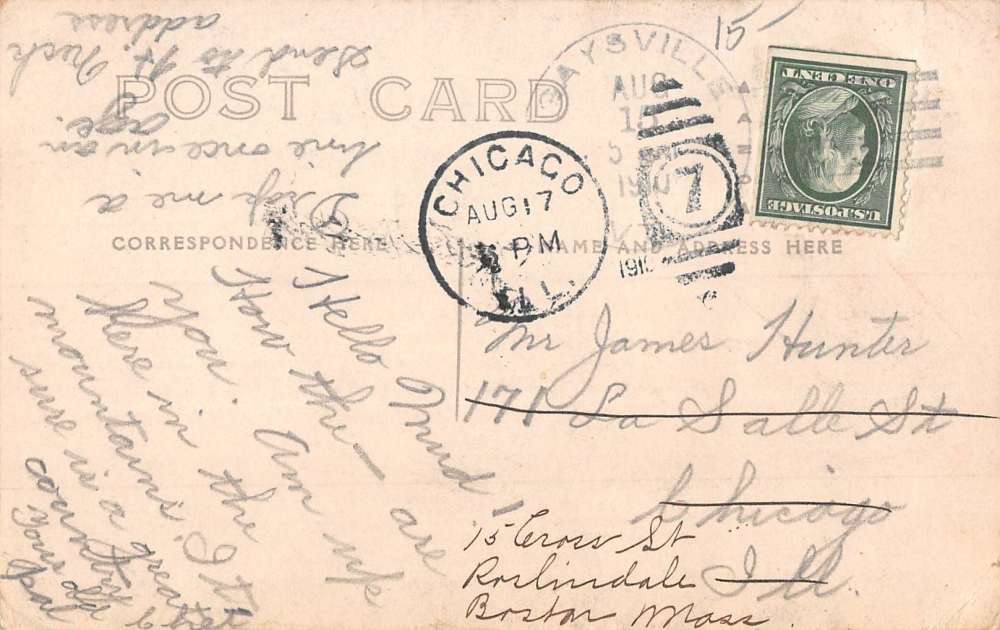 15
POST CARD
AYSVILLE
AUG
15
1910
ONE CENT
U.S.POSTAGE
CHICAGO
AUG 17
PM
ILL.
7
1910
CORRESPONDENCE HERE
NAME AND ADDRESS HERE
Mr James Hunter
171 La Salle St
Chicago
Ill.
15 Cross St
Roslindale
Boston Mass.
Hello
How the — are
you. Am up
here in the
mountains. It
sure is a great
country
Your old
pal
Drop me a
line once in an
age.
Send to
address